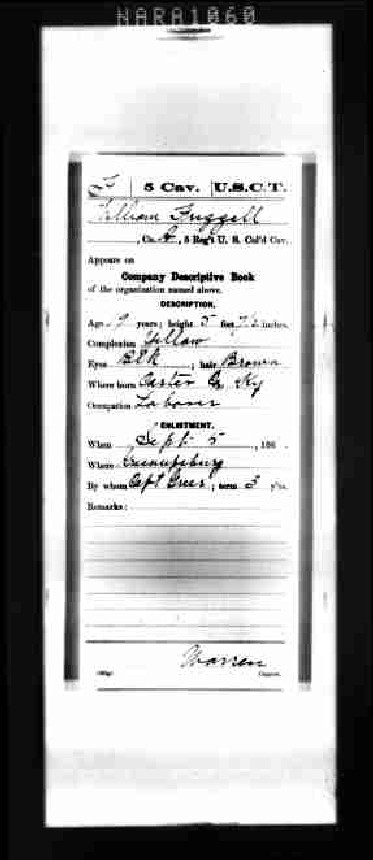 NARA1060
F | 5 Cav. | U.S.C.T.
William Fuggell
, Co. , 5 Reg't U. S. Col'd Cav.
Appears on
Company Descriptive Book
of the organization named above.
DESCRIPTION.
Age 19 years; height 5 feet 7½ inches.
Complexion Yellow
Eyes Blk ; hair Brown
Where born Carter Co Ky
Occupation Laborer
ENLISTMENT.
When Sept 5 , 186 .
Where
By whom Capt ; term 3 y'rs.
Remarks:
Warren
Copyist.